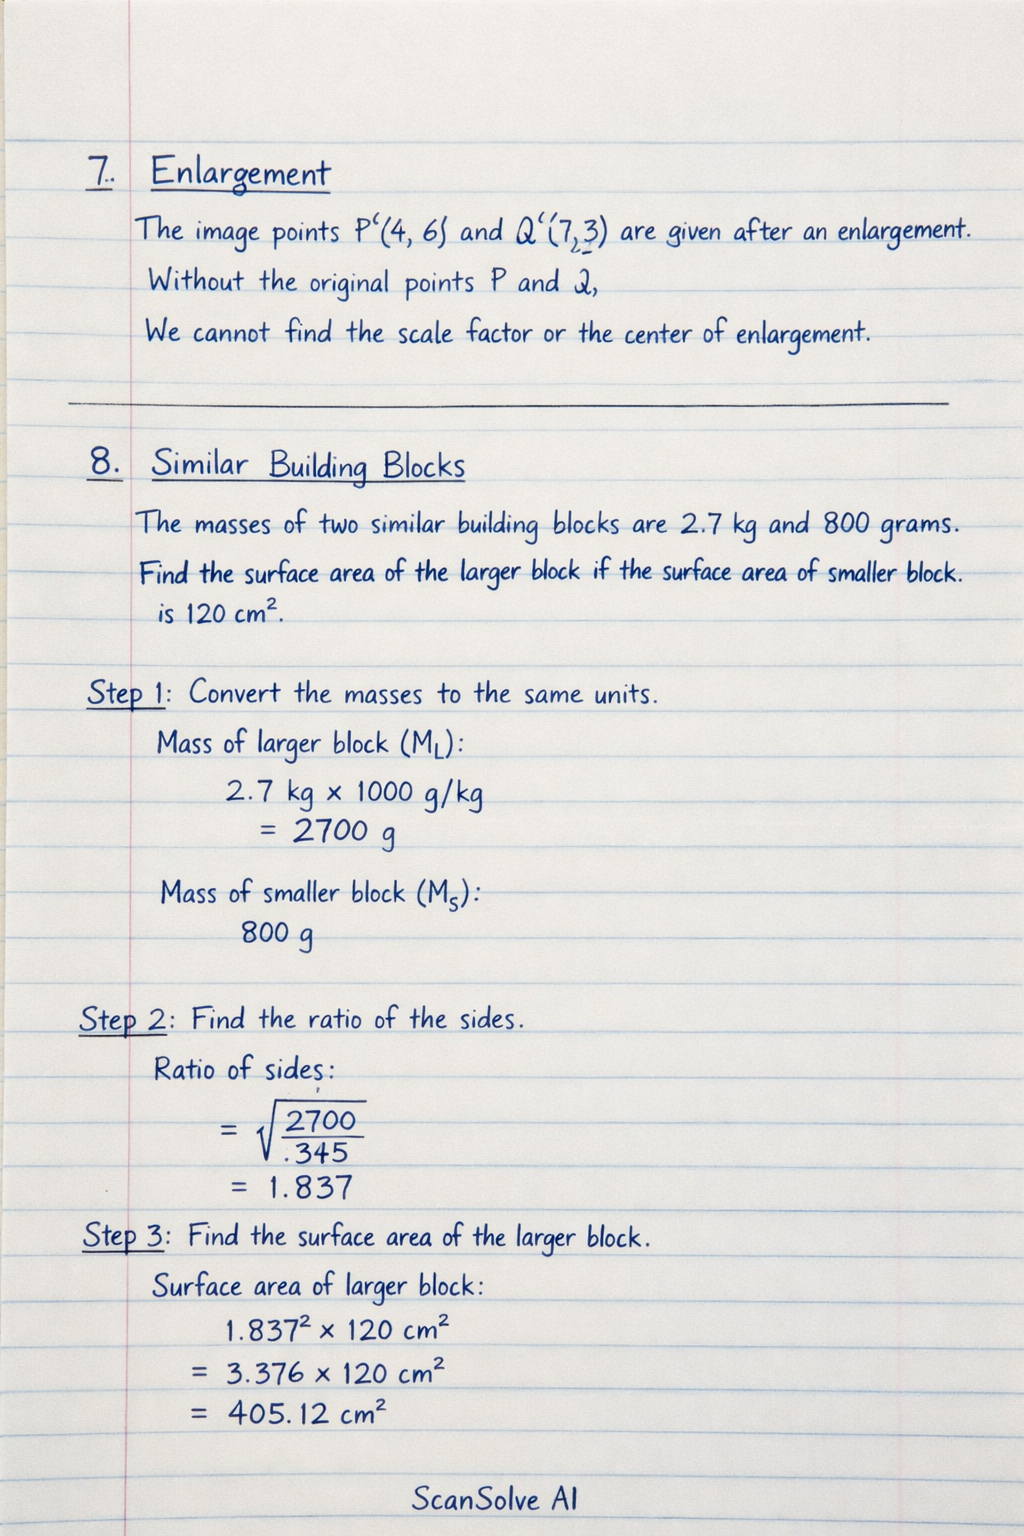 7. Enlargement
The image points P'(4, 6) and Q'(7, 3) are given after an enlargement.
Without the original points P and Q,
We cannot find the scale factor or the center of enlargement.
8. Similar Building Blocks
The masses of two similar building blocks are 2.7 kg and 800 grams.
Find the surface area of the larger block if the surface area of smaller block.
is 120 cm².
Step 1: Convert the masses to the same units.
Mass of larger block (M_L):
2.7 kg × 1000 g/kg
= 2700 g
Mass of smaller block (M_S):
800 g
Step 2: Find the ratio of the sides.
Ratio of sides:
= √(2700/.345)
= 1.837
Step 3: Find the surface area of the larger block.
Surface area of larger block:
1.837² × 120 cm²
= 3.376 × 120 cm²
= 405.12 cm²
ScanSolve AI